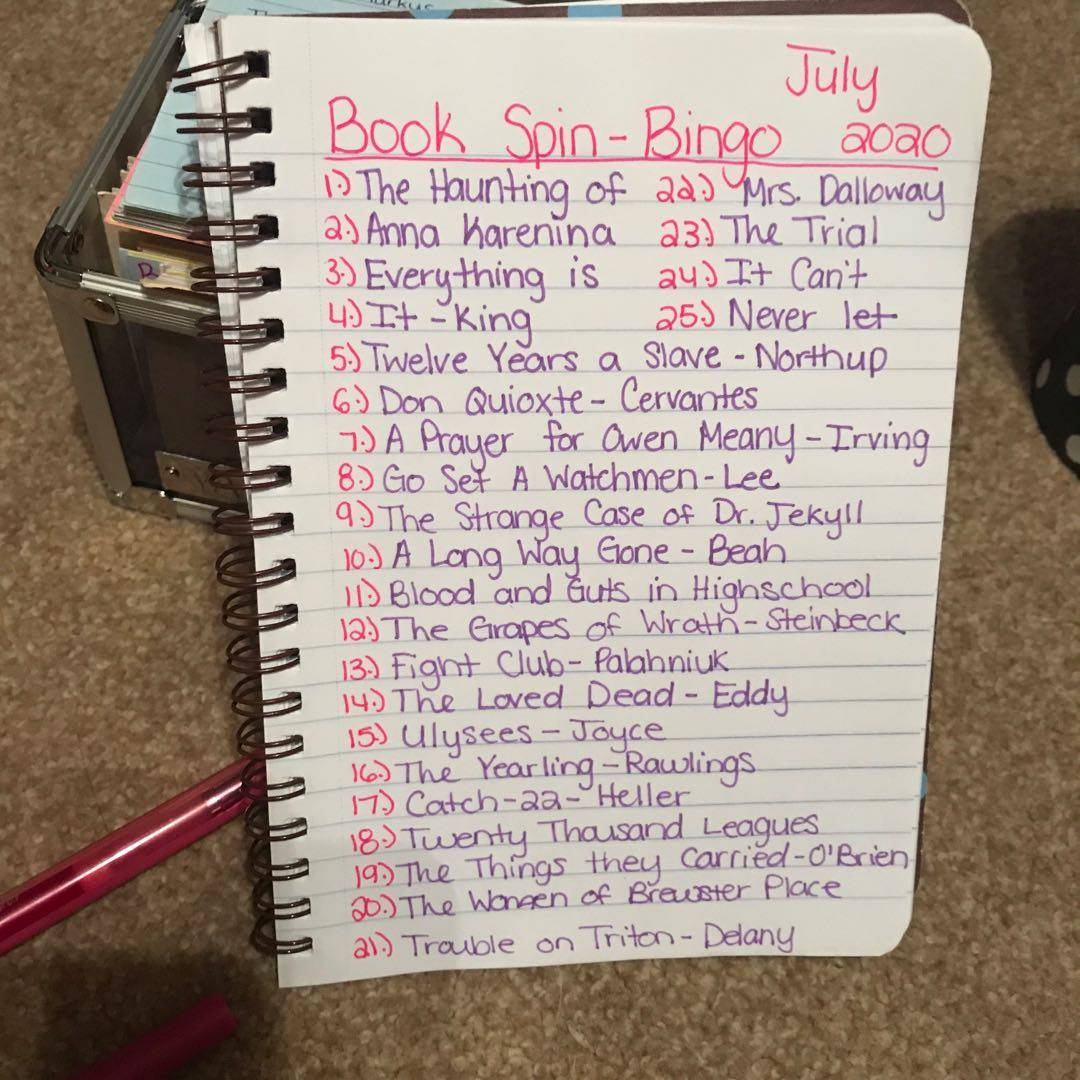 July
Book Spin-Bingo 2020
1.) The Haunting of 22.) Mrs. Dalloway
2.) Anna Karenina 23.) The Trial
3.) Everything is 24.) It Can't
4.) It - King 25.) Never let
5.) Twelve Years a Slave - Northup
6.) Don Quioxte - Cervantes
7.) A Prayer for Owen Meany - Irving
8.) Go Set A Watchmen - Lee
9.) The Strange Case of Dr. Jekyll
10.) A Long Way Gone - Beah
11.) Blood and Guts in Highschool
12.) The Grapes of Wrath - Steinbeck
13.) Fight Club - Palahniuk
14.) The Loved Dead - Eddy
15.) Ulysees - Joyce
16.) The Yearling - Rawlings
17.) Catch-22 - Heller
18.) Twenty Thousand Leagues
19.) The Things they Carried - O'Brien
20.) The Women of Brewster Place
21.) Trouble on Triton - Delany